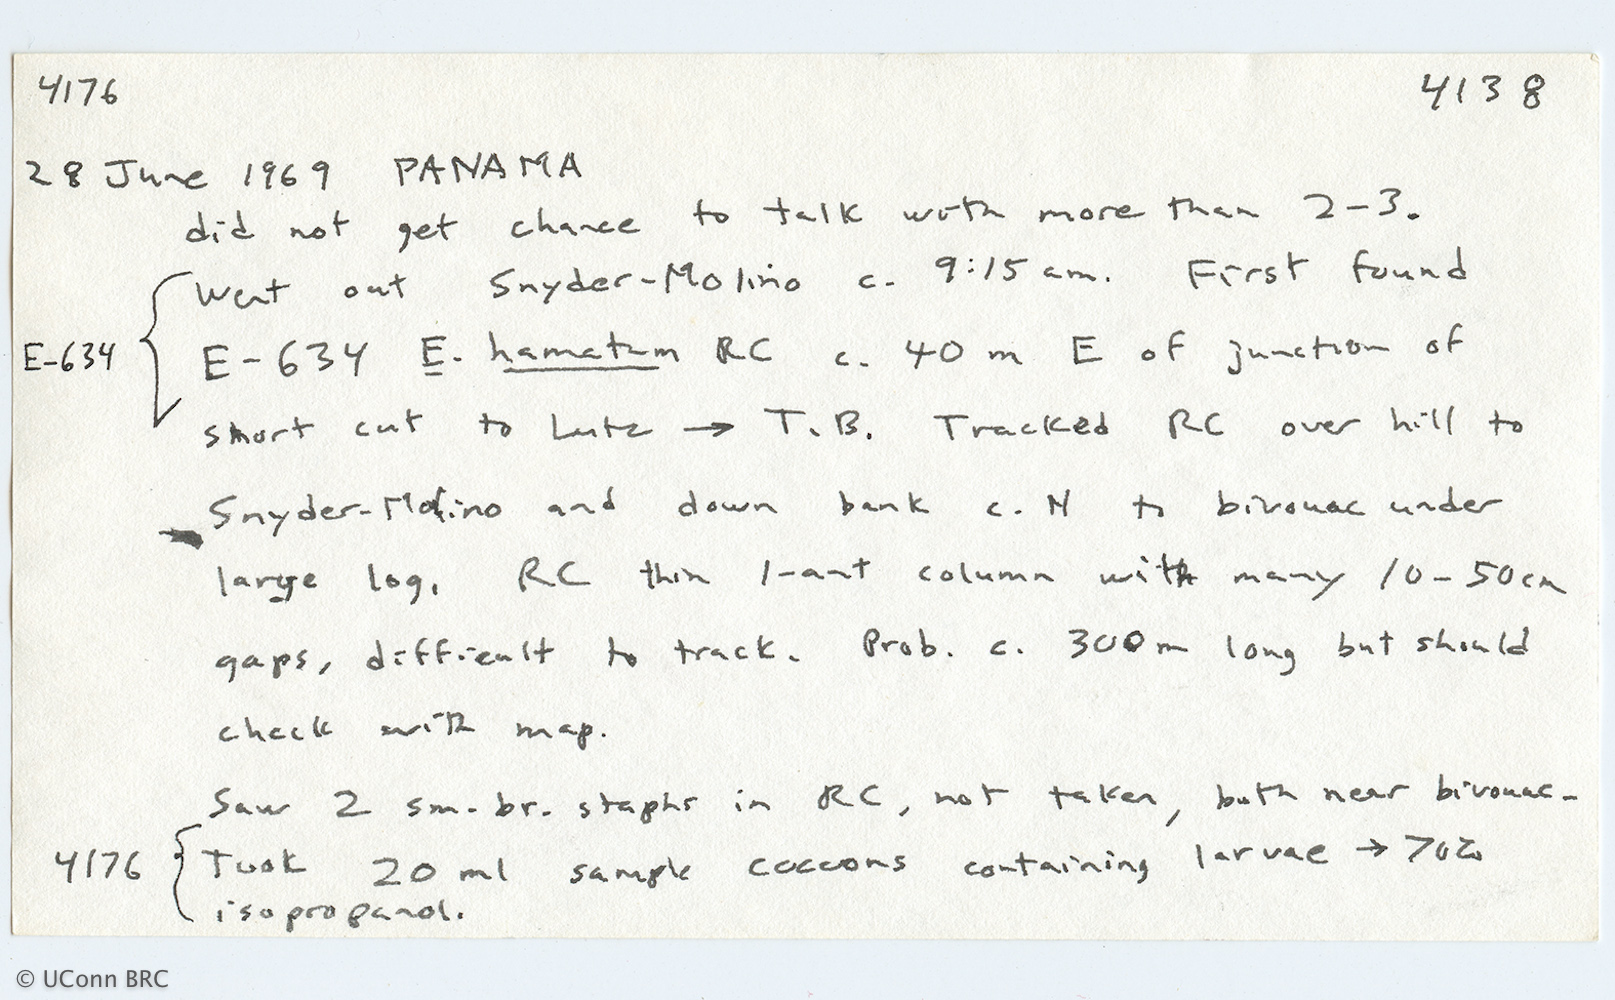 4176 4138
28 June 1969 PANAMA
did not get chance to talk with more than 2-3.
Went out Snyder-Molino c. 9:15 am. First found
E-634
E-634 E. hamatum RC c. 40 m E of junction of
short cut to Lutz → T.B. Tracked RC over hill to
Snyder-Molino and down bank c. N to bivouac under
large log. RC thin 1-ant column with many 10-50cm
gaps, difficult to track. Prob. c. 300m long but should
check with map.
Saw 2 sm. br. staphs in RC, not taken, both near bivouac.
4176 Took 20 ml sample cocoons containing larvae → 70%
isopropanol.
© UConn BRC